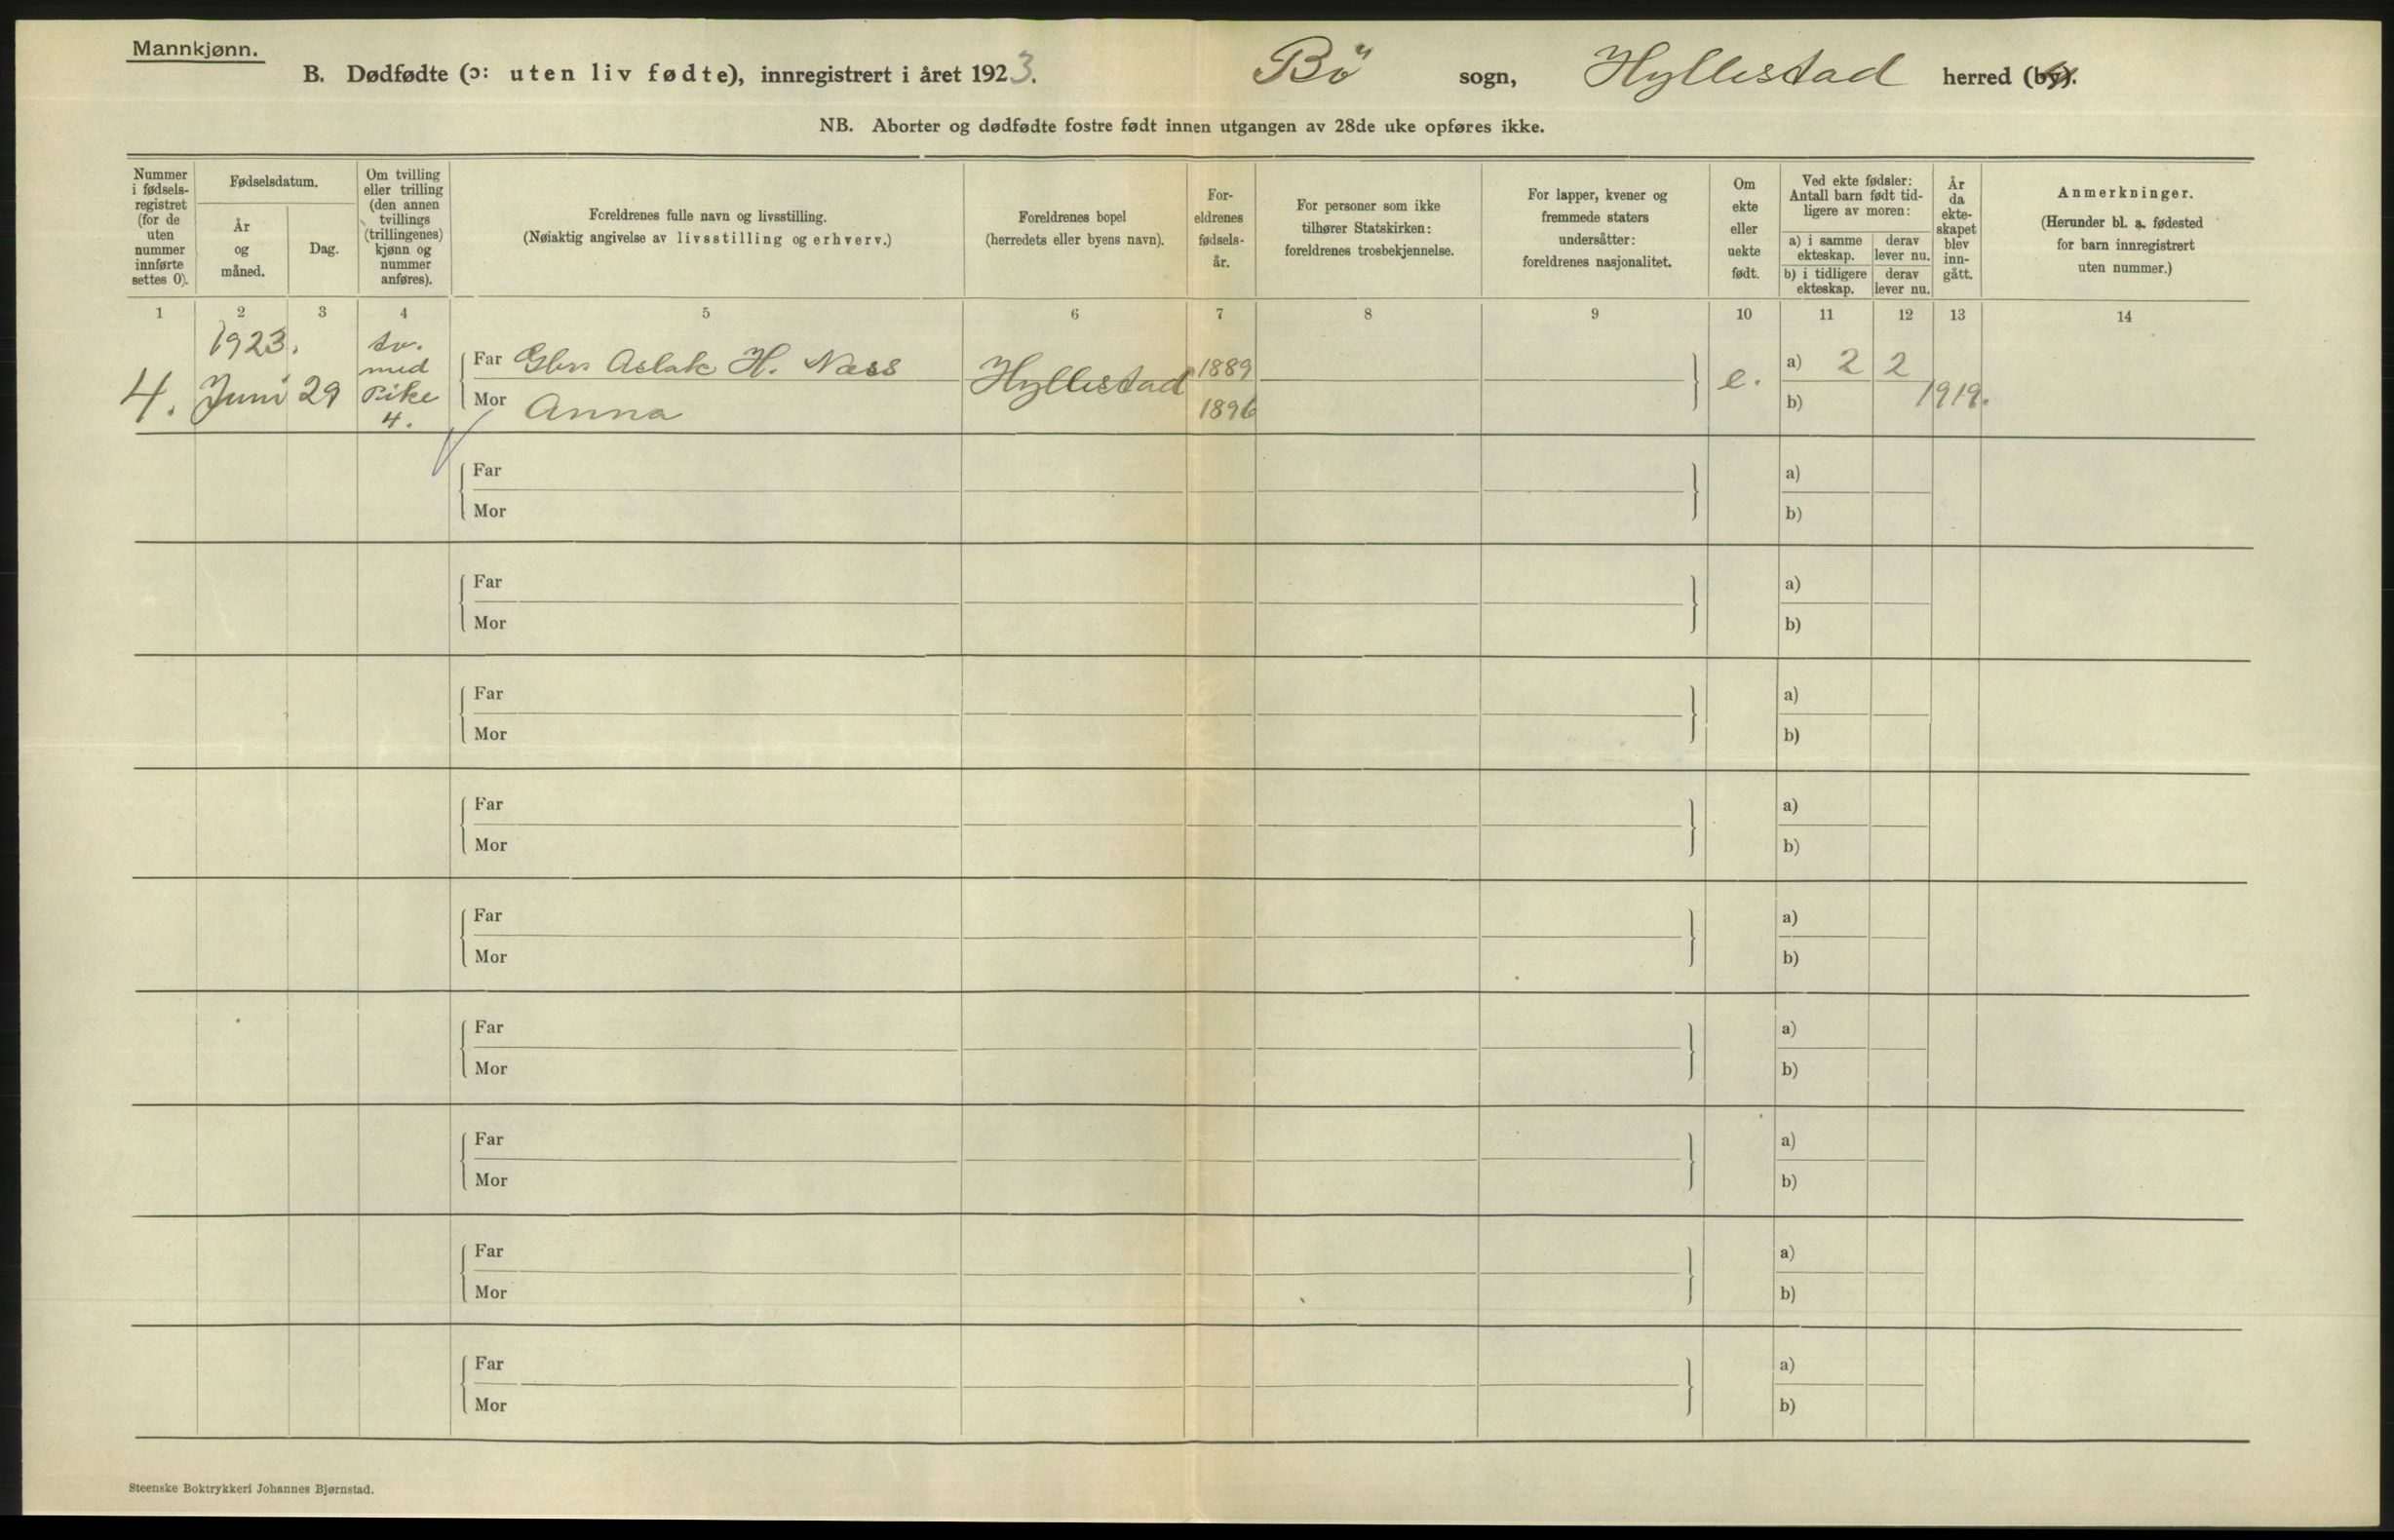 Mannkjønn.
B. Dødfødte (ɔ: uten liv fødte), innregistrert i året 1923. Bö sogn, Hyllestad herred (by).
NB. Aborter og dødfødte fostre født innen utgangen av 28de uke opføres ikke.
Nummer
i fødsels-
registret
(for de
uten
nummer
innførte
settes 0).
Fødselsdatum.
År
og
måned.
Dag.
Om tvilling
eller trilling
(den annen
tvillings
(trillingenes)
kjønn og
nummer
anføres).
Foreldrenes fulle navn og livsstilling.
(Nøiaktig angivelse av livsstilling og erhverv.)
Foreldrenes bopel
(herredets eller byens navn).
For-
eldrenes
fødsels-
år.
For personer som ikke
tilhører Statskirken:
foreldrenes trosbekjennelse.
For lapper, kvener og
fremmede staters
undersåtter:
foreldrenes nasjonalitet.
Om
ekte
eller
uekte
født.
Ved ekte fødsler:
Antall barn født tid-
ligere av moren:
a) i samme
ekteskap.
derav
lever nu.
b) i tidligere
ekteskap.
derav
lever nu.
År
da
ekte-
skapet
blev
inn-
gått.
Anmerkninger.
(Herunder bl. a. fødested
for barn innregistrert
uten nummer.)
1 2 3 4 5 6 7 8 9 10 11 12 13 14
1923. tv.
med
Far Gbr Aslak H. Næss 1889 a) 2 2
4. Juni 29 Pike Hyllestad e.
Mor Anna 1896 b) 1919.
4.
Far a)
Mor b)
Far a)
Mor b)
Far a)
Mor b)
Far a)
Mor b)
Far a)
Mor b)
Far a)
Mor b)
Far a)
Mor b)
Far a)
Mor b)
Far a)
Mor b)
Steenske Boktrykkeri Johannes Bjørnstad.